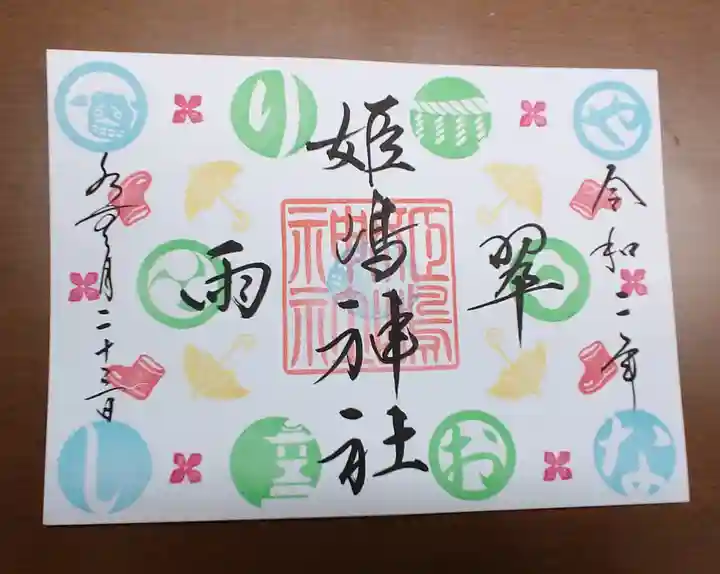 令和二年
翠
姫嶋神社
雨
水無月二十三日
姫嶋
神社
や
り
な
お
し